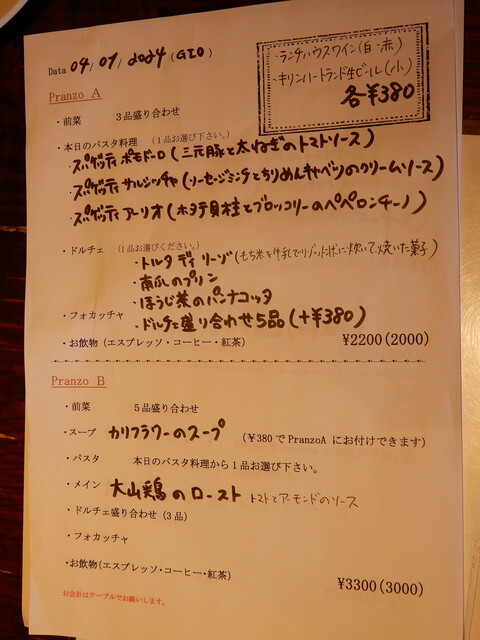 Data 04/01/2024(GIO)
・ランチハウスワイン(白・赤)
・キリンハートランド生ビール(小)
各¥380
Pranzo A
・前菜　3品盛り合わせ
・本日のパスタ料理　(1品お選び下さい。)
・スパゲッティ ポモドーロ(三元豚と太ねぎのトマトソース)
・スパゲッティ サルシッチャ(ソーセージミンチとちりめんキャベツのクリームソース)
・スパゲッティ アーリオ(ホタテ貝柱とブロッコリーのペペロンチーノ)
・ドルチェ　(1品お選びください。)
・トルタ ディ リーゾ(もち米を牛乳でリゾット状に炊いて、焼いた菓子)
・南瓜のプリン
・ほうじ茶のパンナコッタ
・フォカッチャ　・ドルチェ盛り合わせ5品(+¥380)
・お飲物(エスプレッソ・コーヒー・紅茶)　¥2200(2000)
Pranzo B
・前菜　5品盛り合わせ
・スープ　カリフラワーのスープ　(¥380でPranzoAにお付けできます)
・パスタ　本日のパスタ料理から1品お選び下さい。
・メイン　大山鶏のロースト　トマトとアーモンドのソース
・ドルチェ盛り合わせ(3品)
・フォカッチャ
・お飲物(エスプレッソ・コーヒー・紅茶)
¥3300(3000)
お会計はテーブルでお願いします。